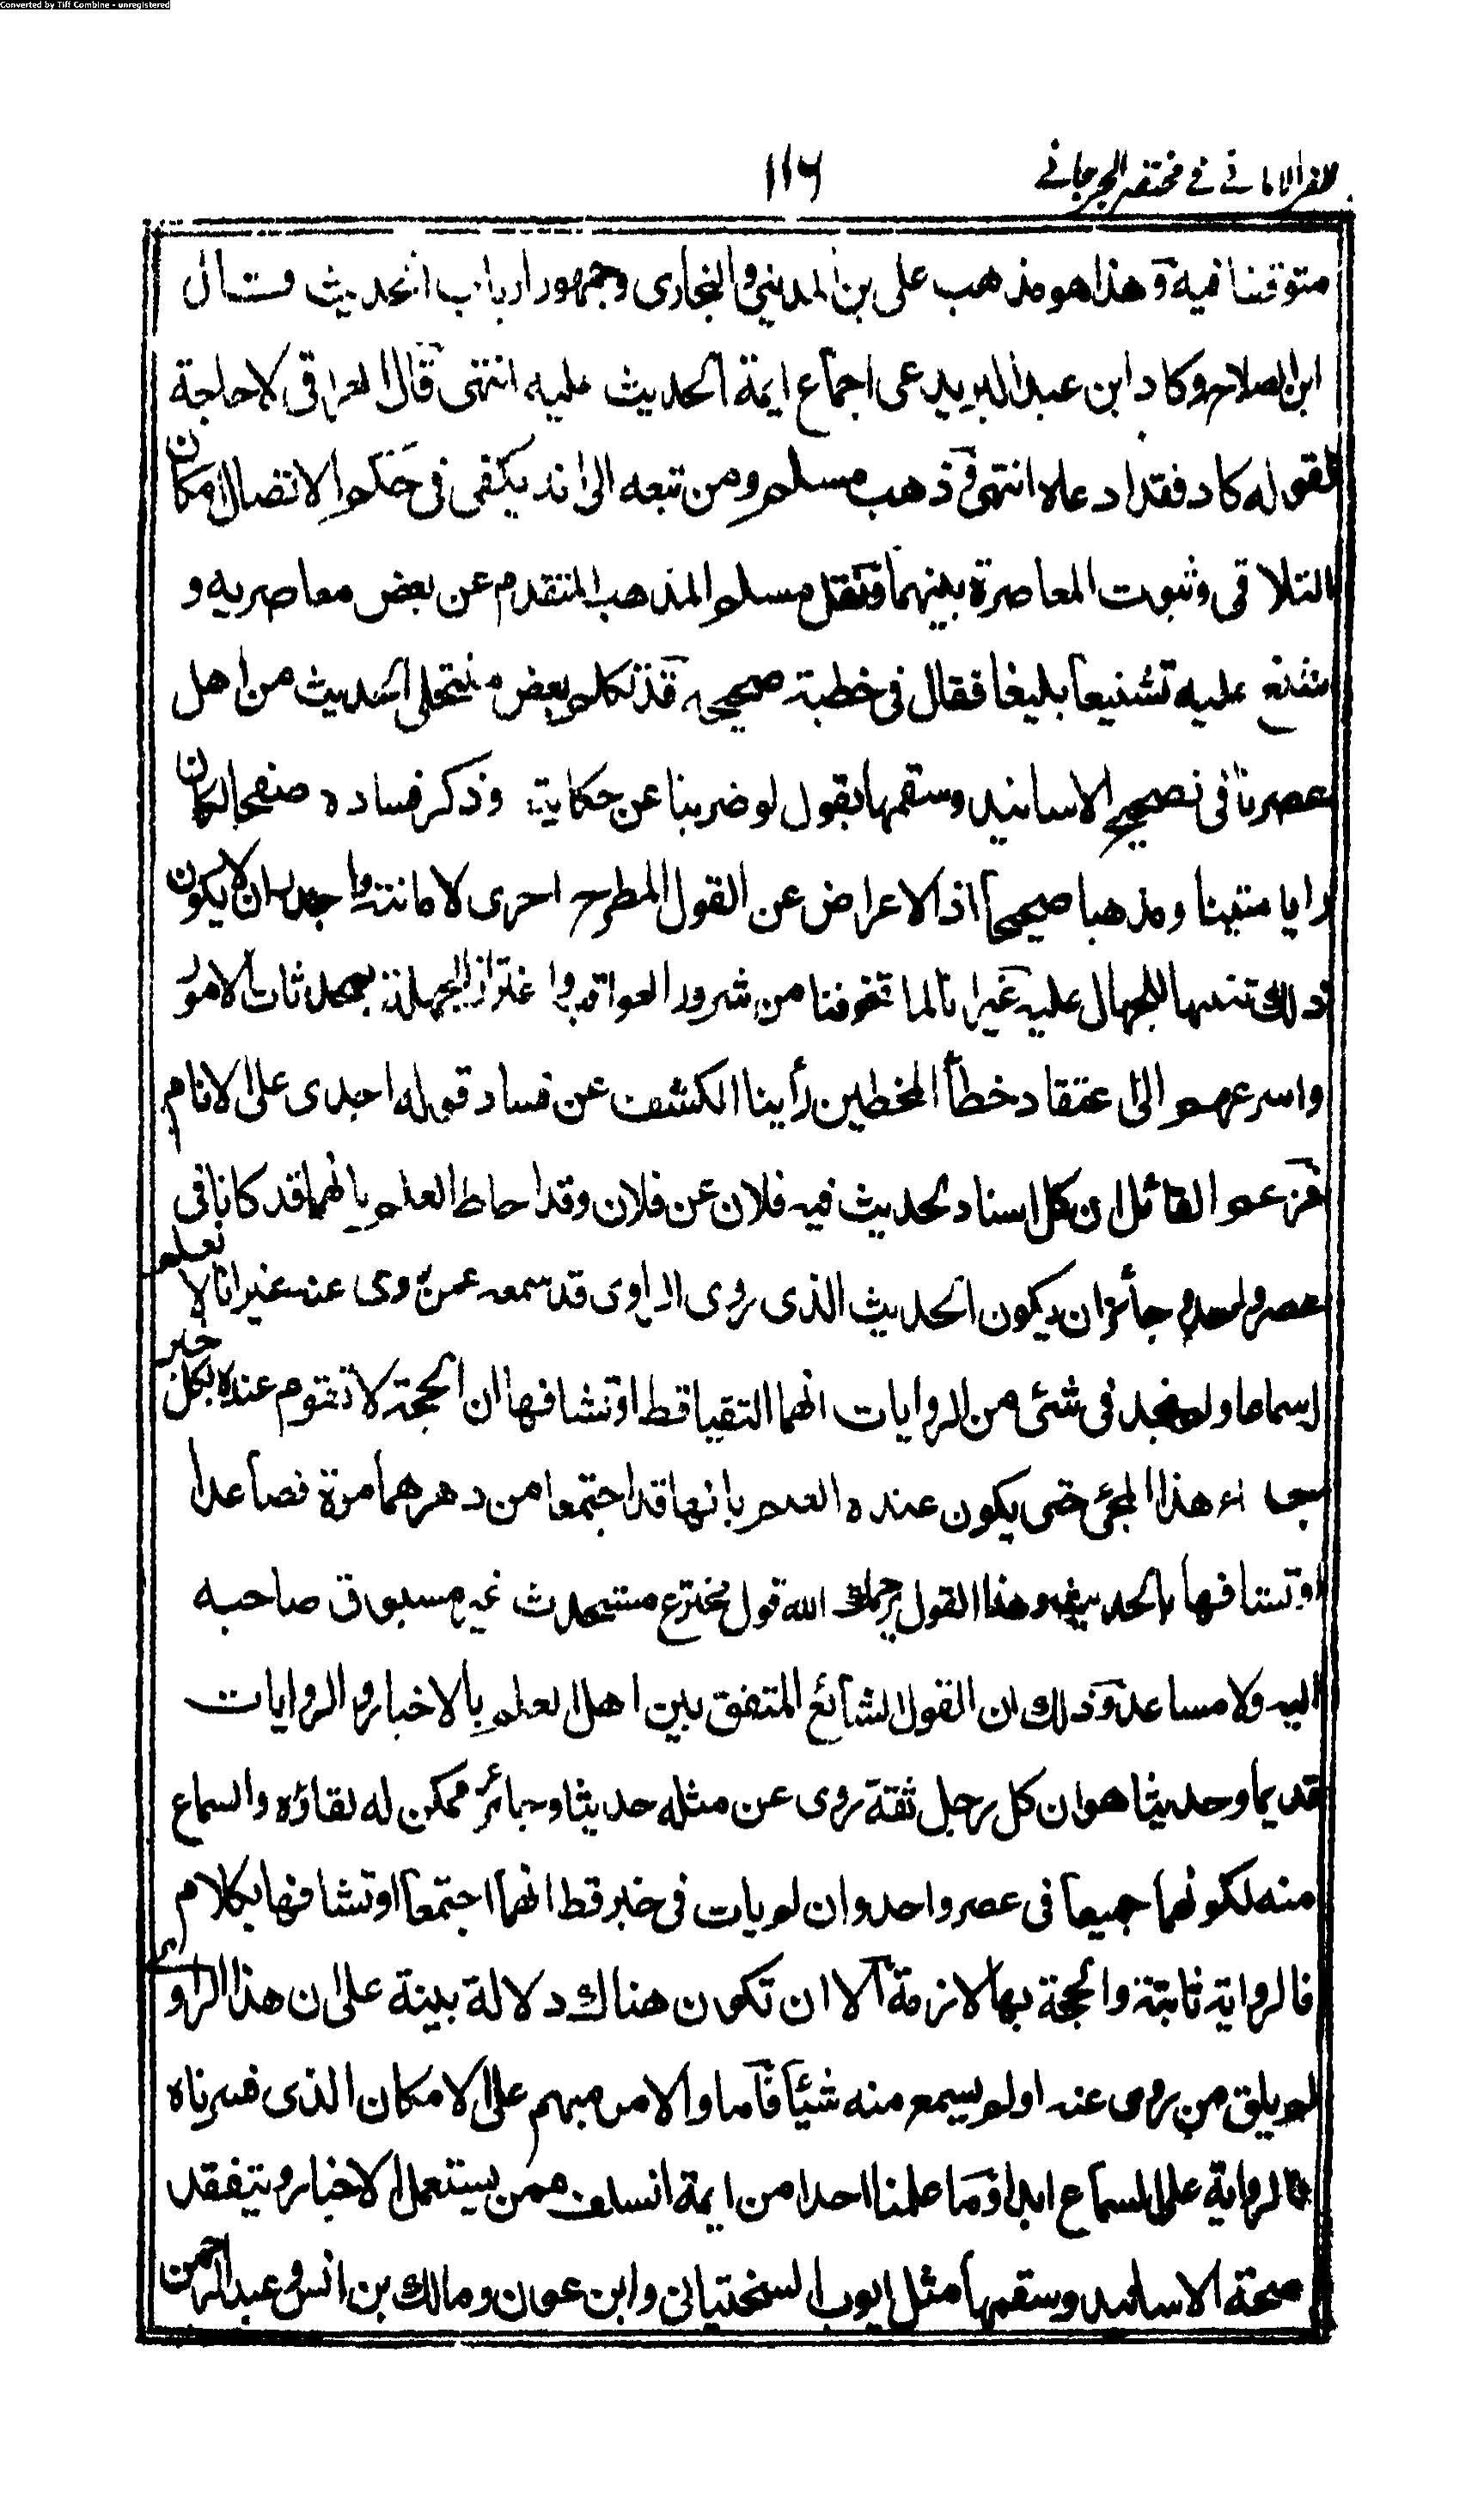 Converted by Tiff Combine - unregistered
ظفر الامانے فے مختصر الجرجانے
١١٦
متوقفنا فيه وهذا هو مذهب على بن المدينى والبخارى وجمهور ارباب الحديث وقال
ابن الصلاح وكاد ابن عبد البر يدعى اجماع ايمة الحديث عليه انتهى قال العراقى لا حاجة
لقوله كاد فقد ادعاه انتهى وذهب مسلم ومن تبعه الى انه يكفى فى حكم الاتصال امكان
التلاقى وثبوت المعاصرة بينهما ونقل مسلم المذهب المتقدم عن بعض معاصريه و
شنع عليه تشنيعا بليغا فقال فى خطبة صحيحه قد تكلم بعض منتحلى الحديث من اهل
عصرنا فى تصحيح الاسانيد وسقمها بقول لو ضربنا عن حكايته وذكر فساده صفحا لكان
رايا متينا ومذهبا صحيحا اذ الاعراض عن القول المطرح احرى لاماتته واجدر ان لا يكون
ذلك تنبيها للجهال عليه غير انا لما تخوفنا من شرور العواقب واغترار الجهلة بمحدثات الامور
واسرعهم الى اعتقاد خطأ المخطين رأينا الكشف عن فساد قوله اجدى على الانام
فزعم القائل ان كل اسناد لحديث فيه فلان عن فلان وقد احاط العلم بانهما قد كانا فى
عصر واحد وجائز ان يكون الحديث الذى روى الراوى قد سمعه عمن روى عنه غير انا لا نعلم
له سماعا ولم نجد فى شئى من الروايات انهما التقيا قط او تشافها ان الحجة لا تقوم عنده بكل خبر
جاء هذا المجئ حتى يكون عنده العلم بانهما قد اجتمعا من دهرهما مرة فصاعدا
او تشافها بالحديث وهذا القول يرحمك الله قول مخترع مستحدث غير مسبوق صاحبه
اليه ولا مساعد وذلك ان القول الشائع المتفق بين اهل العلم بالاخبار والروايات
قديما وحديثا هو ان كل رجل ثقة روى عن مثله حديثا وجائز ممكن له لقاؤه والسماع
منه لكونهما جميعا فى عصر واحد وان لم يات فى خبر قط انهما اجتمعا او تشافها بكلام
فالرواية ثابتة والحجة بها لازمة الا ان تكون هناك دلالة بينة على ان هذا الراوى
لم يلق من روى عنه او لم يسمع منه شيئا فاما والامر مبهم على الامكان الذى فسرناه
فالرواية على السماع ابدا وما علمنا احدا من ايمة السلف ممن يستعمل الاخبار ويتفقد
صحة الاسانيد وسقمها مثل ايوب السختيانى وابن عون ومالك بن انس وعبد الرحمن